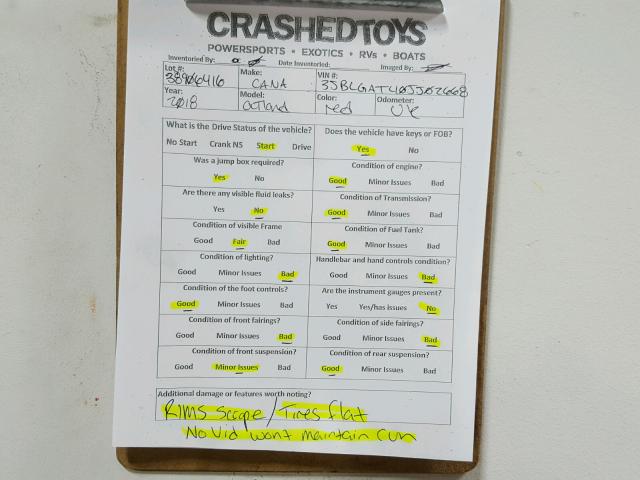 CRASHEDTOYS
POWERSPORTS • EXOTICS • RVs • BOATS
Inventoried By: Date Inventoried: Imaged By:
Lot #: Make: VIN #:
38906416 CANA 3JBLGAT40JJ02668
Year: Model: Color: Odometer:
2018 Outland red UK
What is the Drive Status of the vehicle? Does the vehicle have keys or FOB?
No Start Crank NS Start Drive Yes No
Was a jump box required? Condition of engine?
Yes No Good Minor Issues Bad
Are there any visible fluid leaks? Condition of Transmission?
Yes No Good Minor Issues Bad
Condition of visible Frame Condition of Fuel Tank?
Good Fair Bad Good Minor Issues Bad
Condition of lighting? Handlebar and hand controls condition?
Good Minor Issues Bad Good Minor Issues Bad
Condition of the foot controls? Are the instrument gauges present?
Good Minor Issues Bad Yes Yes/has issues No
Condition of front fairings? Condition of side fairings?
Good Minor Issues Bad Good Minor Issues Bad
Condition of front suspension? Condition of rear suspension?
Good Minor Issues Bad Good Minor Issues Bad
Additional damage or features worth noting?
RIMS Scrape / Tires flat
No Vid Wont maintain run